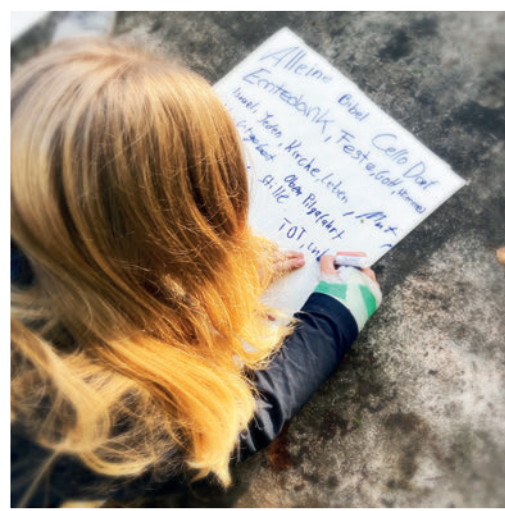 Alleine Bibel Cello Dorf
Erntedank, Feste, Gott,
Israel, Juden, Kirche, Leben,
Pilgerfahrt
Stille
TOT,